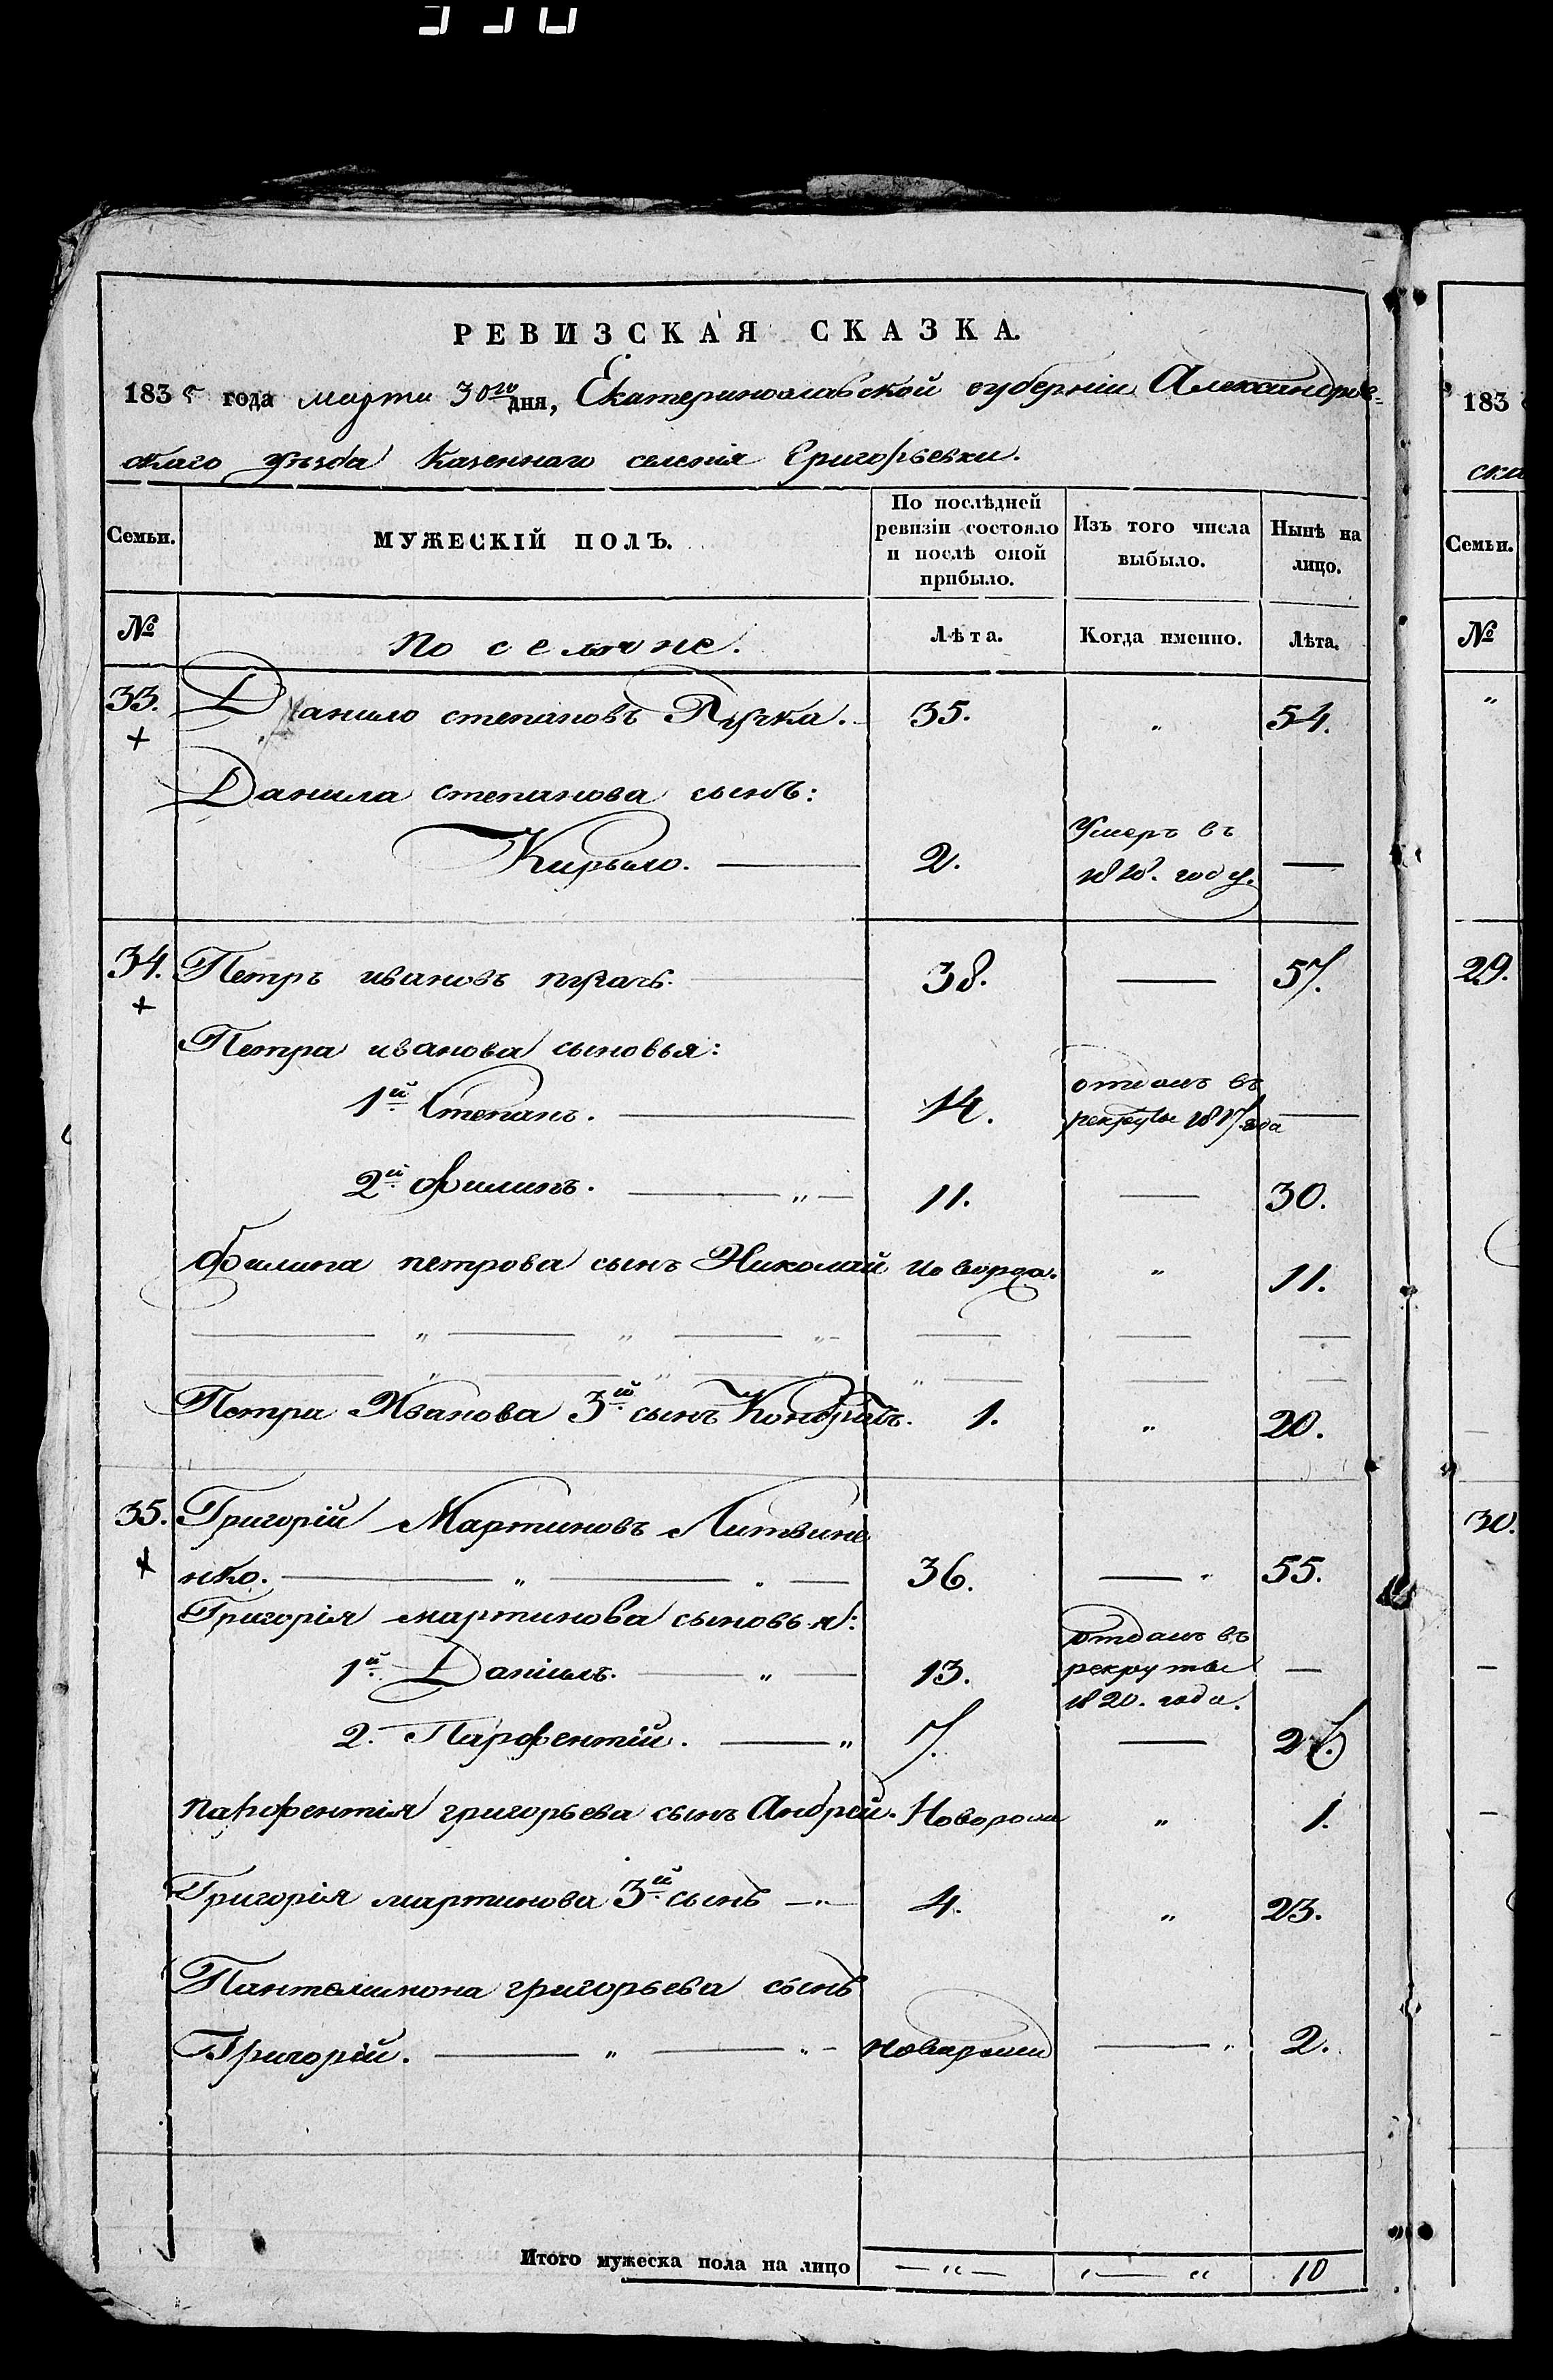 РЕВИЗСКАЯ СКАЗКА.
1835 года марта 30го дня, Екатеринославской губерніи Александров-
скаго уѣзда Казеннаго селенія Григорьевки.
Семьи.
МУЖЕСКІЙ ПОЛЪ.
По послѣдней ревизіи состояло и послѣ оной прибыло.
Изъ того числа выбыло.
Нынѣ на лицо.
№
Поселяне.
Лѣта.
Когда именно.
Лѣта.
33. Данило степановъ 35. " 54.
Данила степанова сынъ:
Кирыло. 2. Умеръ въ 1818. году. —
34. Петръ ивановъ пугачь. 38. — 57.
Петра иванова сыновья:
1й Степанъ. 14. отданъ въ рекруты 1817 года —
2й Филипъ. " 11. — 30.
Филипа петрова сынъ Николай новорож. " 11.
Петра Иванова 3й сынъ Кондратъ. 1. " 20.
35. Григорій Мартиновъ Литвине
нко. 36. — " 55.
Григорія мартинова сыновья:
1й Даніилъ. " 13. отданъ въ рекруты 1820. года. —
2. Парфентій. " 7. — 26.
парфентія григорьева сынъ Андрей. Новорож " 1.
Григорія мартинова 3й сынъ 4. " 23.
Пантелимона григорьева сынъ
Григорій. " " новорож — " 2.
Итого мужеска пола на лицо — " — " — " 10
183
ска
Семьи.
№
"
29.
30.